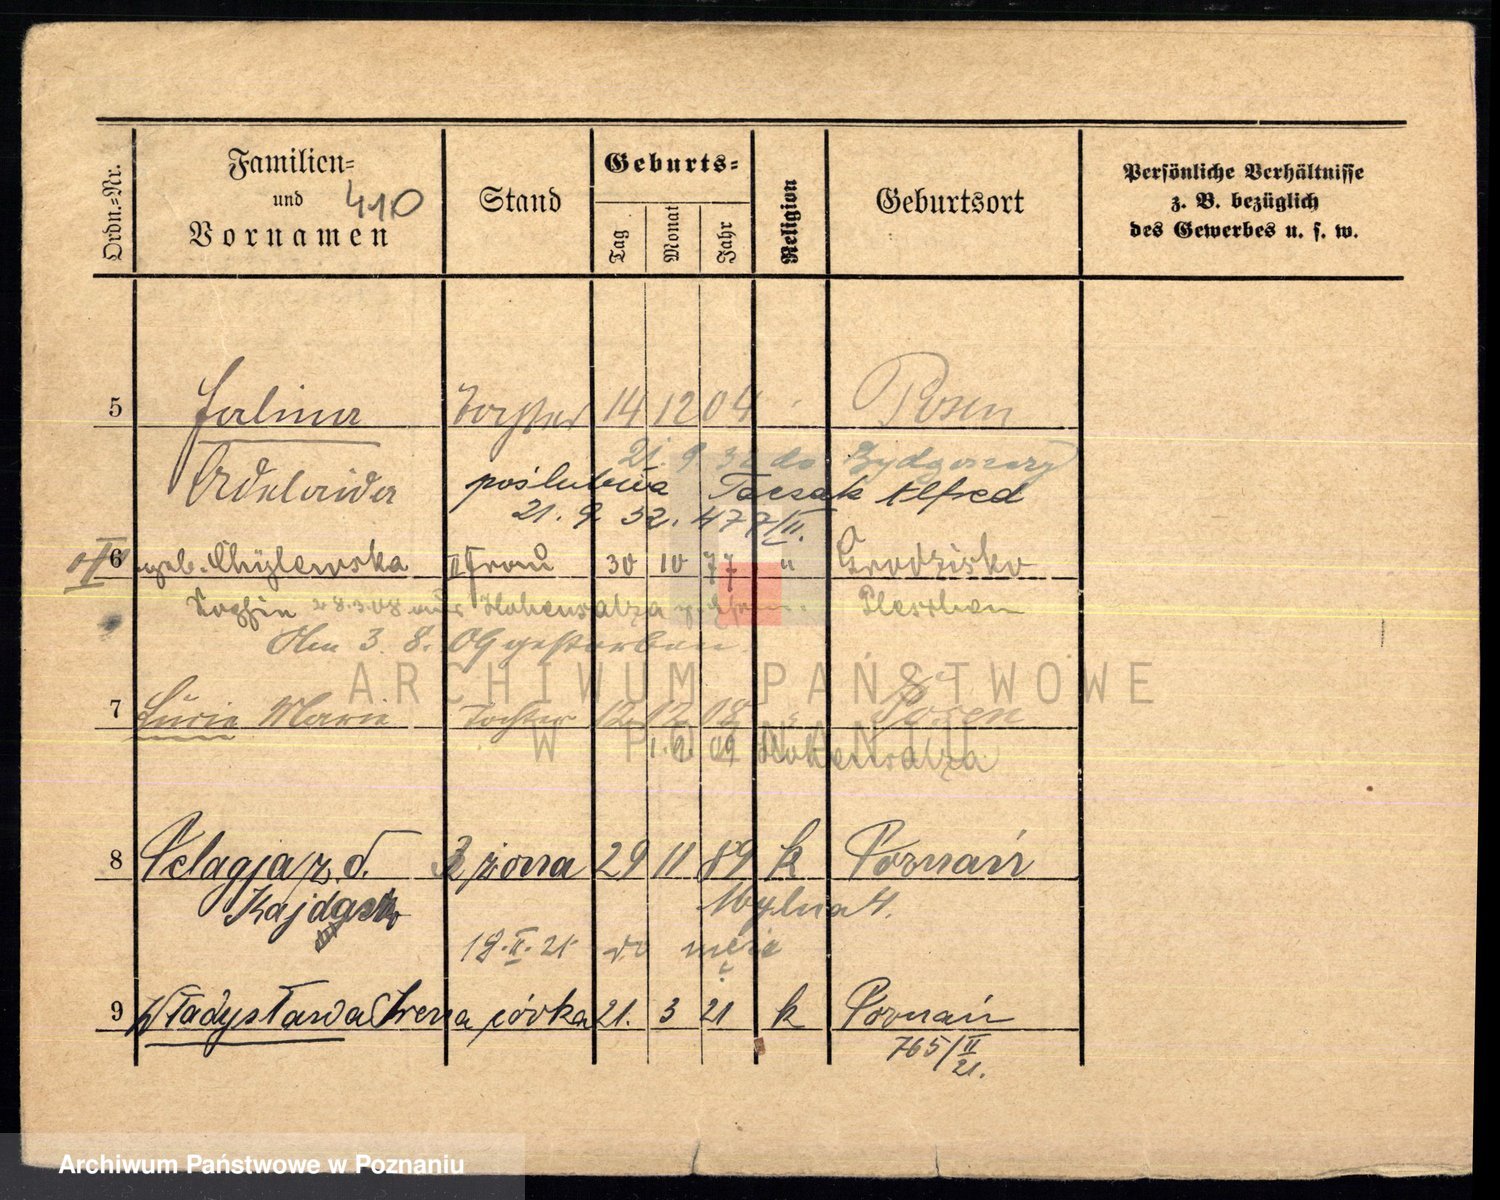 Ordn.-Nr.
Familien-
und
Vornamen
410
Stand
Geburts-
Tag
Monat
Jahr
Religion
Geburtsort
Persönliche Verhältnisse
z. B. bezüglich
des Gewerbes u. s. w.
5 Halina Tochter 14 12 04 Posen
21 9 32 do Bydgoszczy
Adelaida poślubiła Alfred
21. 9. 32. 477/II.
6 geb. Chylewska II Frau 30 10 77 " Grodzisko
28.3.08 aus Hohensalza Pleschen
Am 3. 8. 09 gestorben.
7 Lucie Marie Tochter 12 12 08 " Posen
1. 9. 09 Hohensalza
8 Pelagja z d. 3 żona 29 11 89 k Poznań
Kajdasz Mylna 4.
18.II.21 do męża
9 Władysława Irena córka 21. 3 21 k Poznań
765/II
21.
ARCHIWUM PAŃSTWOWE
W POZNANIU
Archiwum Państwowe w Poznaniu